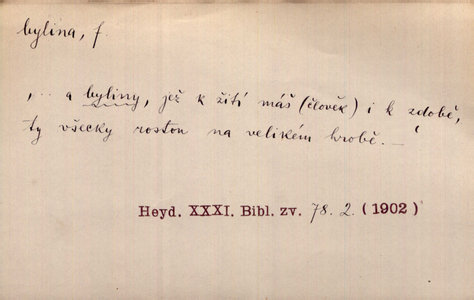 bylina, f.
„... a byliny, jež k žití máš (člověk) i k zdobě,
ty všecky rostou na velikém hrobě. —“
Heyd. XXXI. Bibl. zv. 78. 2. (1902)